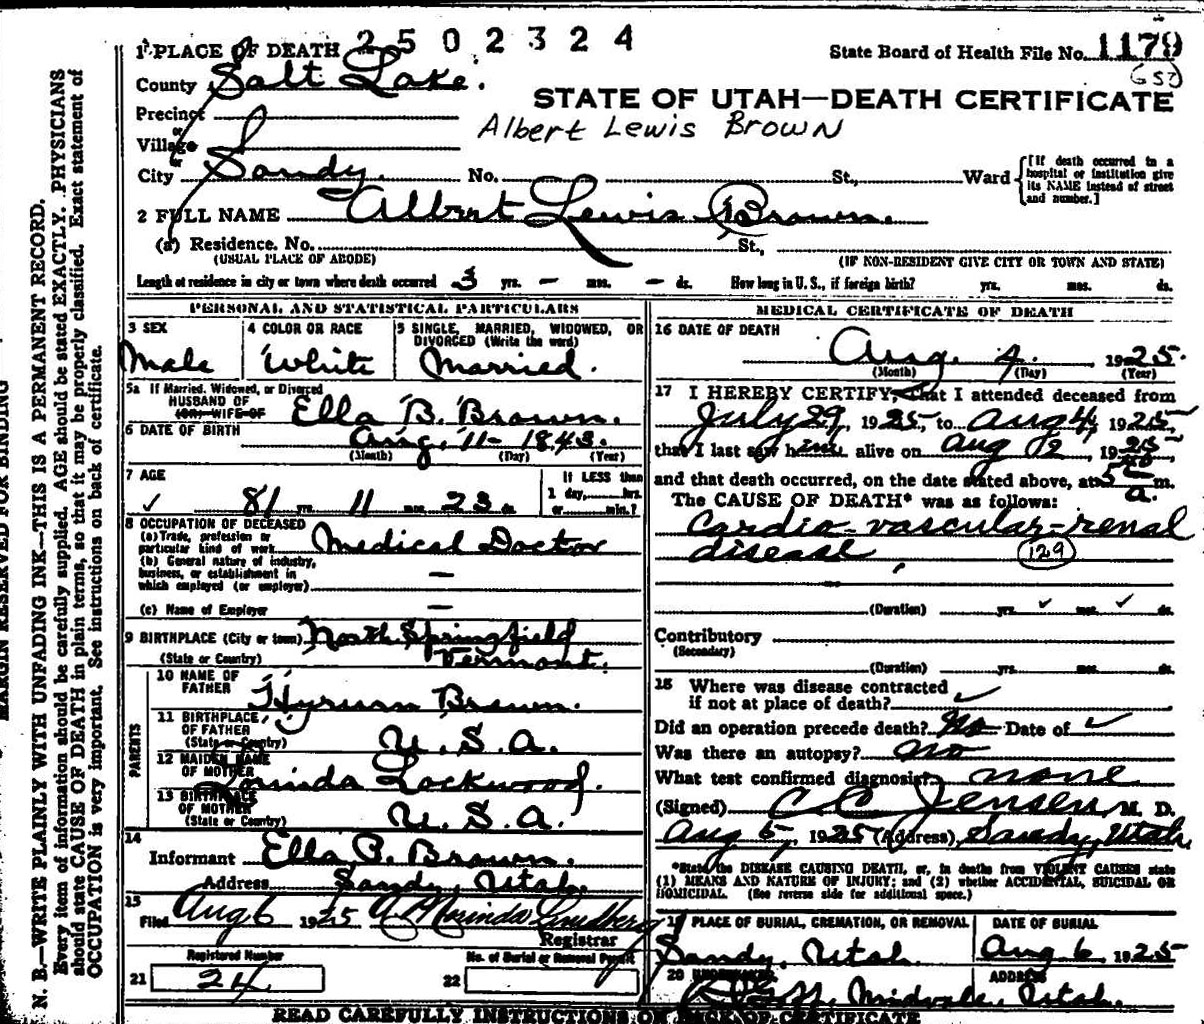 2502324
1 PLACE OF DEATH
State Board of Health File No. 1179
County Salt Lake.
Precinct
or
Village
or
City Sandy. No. St., Ward
[If death occurred in a hospital or institution give its NAME instead of street and number.]
STATE OF UTAH—DEATH CERTIFICATE
Albert Lewis Brown
2 FULL NAME Albert Lewis Brown.
(a) Residence. No. St.,
(USUAL PLACE OF ABODE) (IF NON-RESIDENT GIVE CITY OR TOWN AND STATE)
Length of residence in city or town where death occurred 3 yrs. — mos. — ds. How long in U. S., if foreign birth? yrs. mos. ds.
PERSONAL AND STATISTICAL PARTICULARS
3 SEX
Male
4 COLOR OR RACE
White
5 SINGLE, MARRIED, WIDOWED, OR DIVORCED (Write the word)
Married.
5a If Married, Widowed, or Divorced
HUSBAND OF
(OR) WIFE OF
Ella B. Brown.
6 DATE OF BIRTH Aug. 11- 1843.
(Month) (Day) (Year)
7 AGE
81 yrs. 11 mos. 23 ds.
If LESS than
1 day, hrs.
or min.?
8 OCCUPATION OF DECEASED
(a) Trade, profession or
particular kind of work Medical Doctor
(b) General nature of industry,
business, or establishment in
which employed (or employer) —
(c) Name of Employer —
9 BIRTHPLACE (City or town) North Springfield
(State or Country) Vermont.
PARENTS
10 NAME OF
FATHER Hyrum Brown.
11 BIRTHPLACE
OF FATHER
(State or Country) U. S. A.
12 MAIDEN NAME
OF MOTHER Lockwood.
13 BIRTHPLACE
OF MOTHER
(State or Country) U. S. A.
14
Informant Ella B. Brown.
Address Sandy, Utah.
15
Filed Aug 6 1925
Registrar
Registered Number
21 24
No. of Burial or Removal Permit
22
MEDICAL CERTIFICATE OF DEATH
16 DATE OF DEATH
Aug. 4. 1925.
(Month) (Day) (Year)
17 I HEREBY CERTIFY, That I attended deceased from
July 29, 1925, to Aug 4, 1925,
that I last saw him alive on Aug 1925
and that death occurred, on the date stated above, at 5 a. m.
The CAUSE OF DEATH* was as follows:
Cardio-vascular-renal
disease 129
(Duration) yrs. mos. ds.
Contributory
(Secondary)
(Duration) yrs. mos. ds.
18 Where was disease contracted
if not at place of death?
Did an operation precede death? No Date of
Was there an autopsy? no
What test confirmed diagnosis? none
(Signed) C C Jensen, M. D.
Aug 5, 1925 (Address) Sandy, Utah.
*State the DISEASE CAUSING DEATH, or, in deaths from VIOLENT CAUSES state
(1) MEANS AND NATURE OF INJURY; and (2) whether ACCIDENTAL, SUICIDAL OR
HOMICIDAL. (See reverse side for additional space.)
19 PLACE OF BURIAL, CREMATION, OR REMOVAL
Sandy, Utah.
DATE OF BURIAL
Aug 6 1925
20 ADDRESS
Midvale, Utah.
READ CAREFULLY INSTRUCTIONS ON BACK OF CERTIFICATE
MARGIN RESERVED FOR BINDING
N. B.—WRITE PLAINLY WITH UNFADING INK—THIS IS A PERMANENT RECORD.
Every item of information should be carefully supplied. AGE should be stated EXACTLY. PHYSICIANS
should state CAUSE OF DEATH in plain terms, so that it may be properly classified. Exact statement of
OCCUPATION is very important. See instructions on back of certificate.